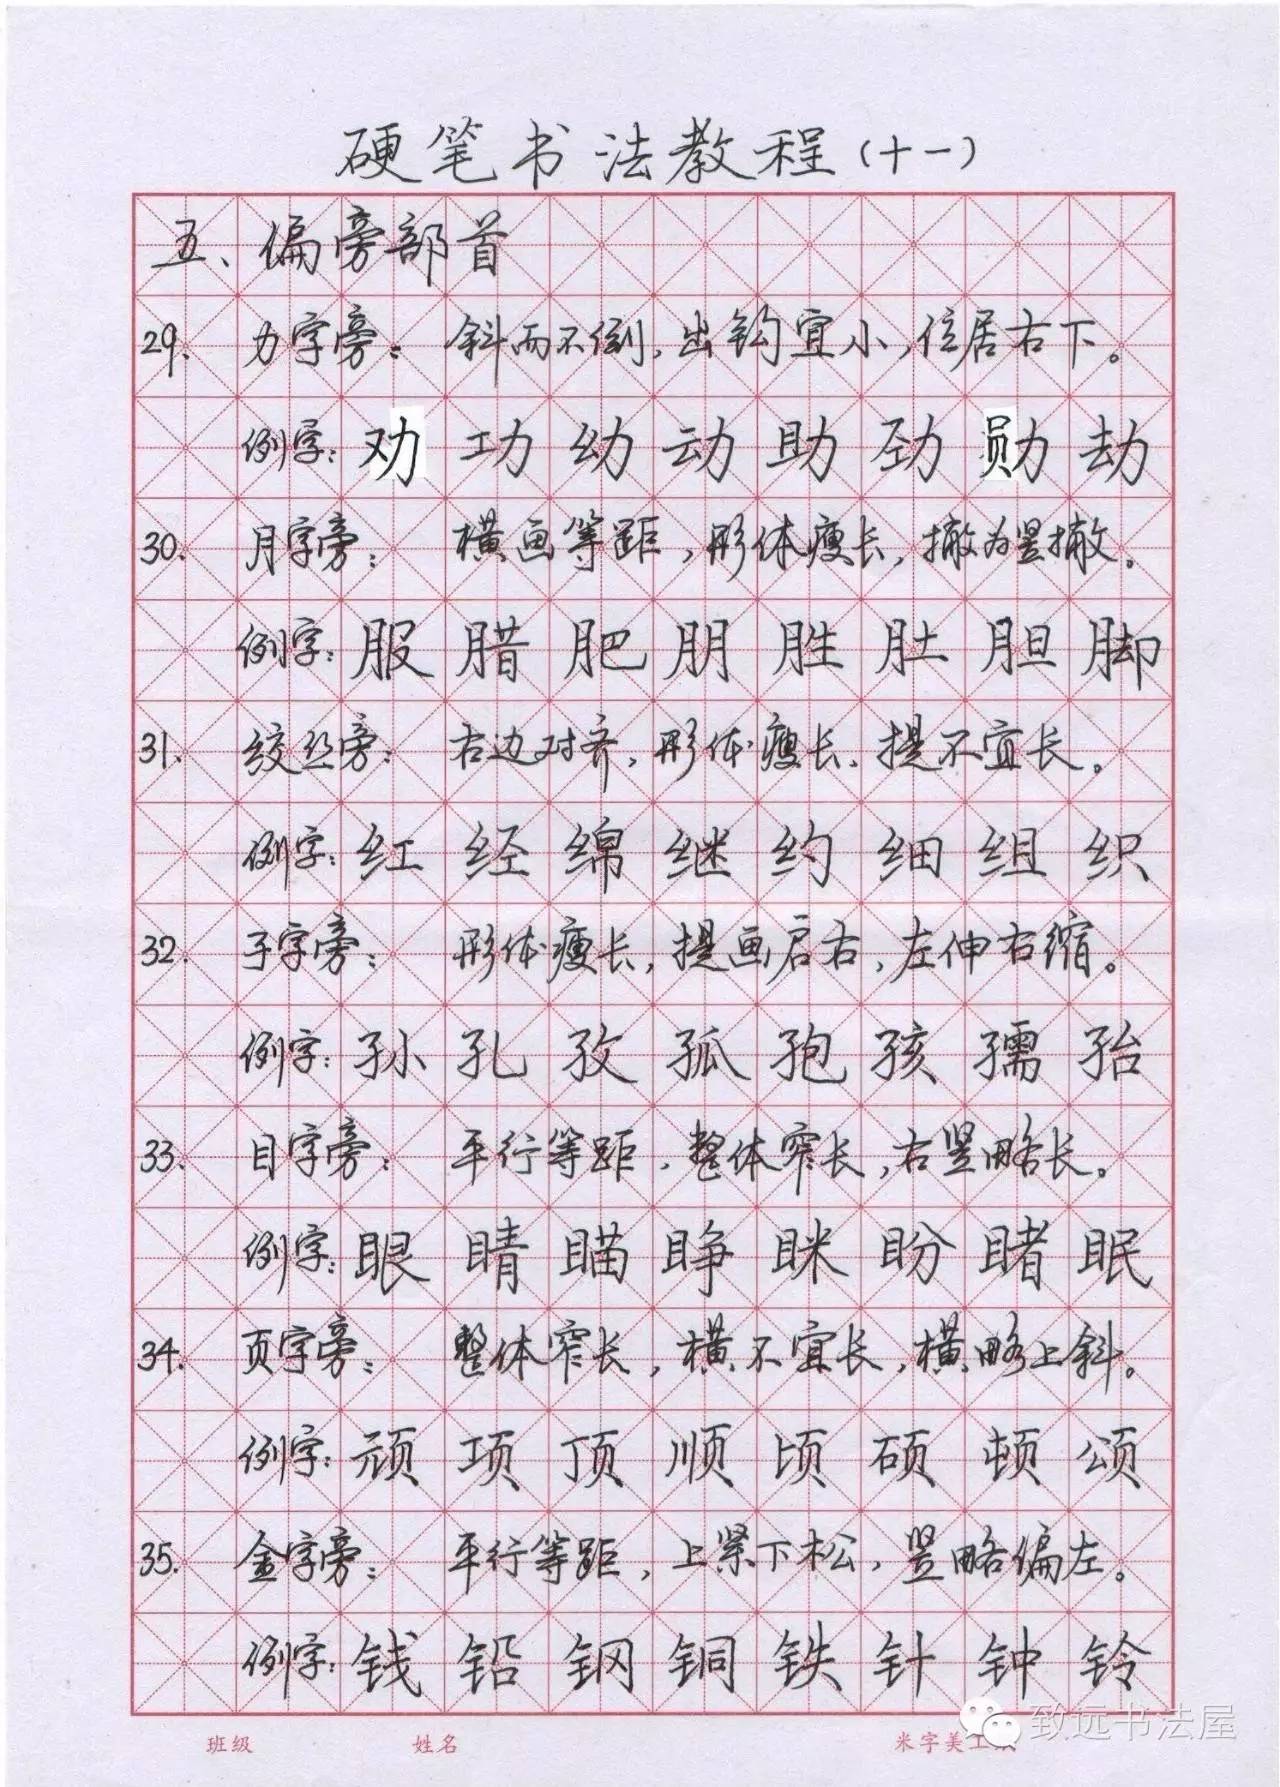 硬笔书法教程(十一)
五、偏旁部首
29. 力字旁: 斜而不倒,出钩宜小,位居右下。
例字: 劝 功 幼 动 助 劲 勋 劫
30. 月字旁: 横画等距,形体瘦长,撇为竖撇。
例字: 服 腊 肥 朋 胜 肚 胆 脚
31. 绞丝旁: 右边对齐,形体瘦长,提不宜长。
例字: 红 经 绵 继 约 细 组 织
32. 子字旁: 形体瘦长,提画启右,左伸右缩。
例字: 孙 孔 孜 孤 孢 孩 孺 孡
33. 目字旁: 平行等距,整体窄长,右竖略长。
例字: 眼 睛 瞄 睁 眯 盼 睹 眠
34. 页字旁: 整体窄长,横不宜长,横略上斜。
例字: 顽 项 顶 顺 顷 硕 顿 颂
35. 金字旁: 平行等距,上紧下松,竖略偏左。
例字: 钱 铅 钢 铜 铁 针 钟 铃
班级 姓名 米字美工
致远书法屋